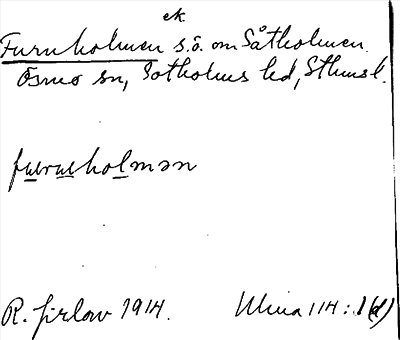 ek
Furuholmen s.ö. om Såtholmen.
Ösmo sn, Sotholms hd, Sthmsl.
furuholmən
R. Jirlow 1914. 114:1(d)